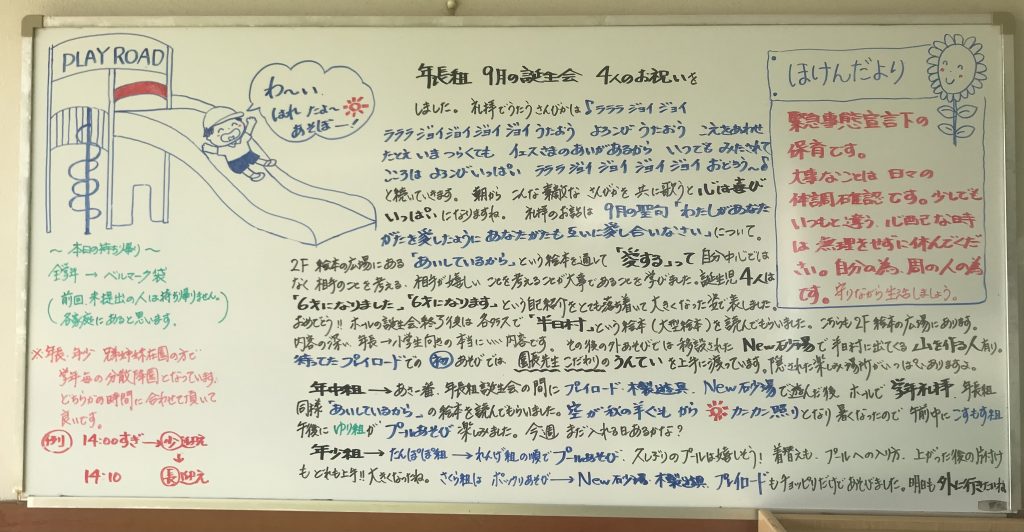 PLAY ROAD
わ〜い
はれ たよ〜
あそぼー!
〜 本日の持ち帰り 〜
全学年 → ベルマーク袋
(前回、未提出の人は持ち帰りません。
各家庭にあると思います。)
※年長、年少 姉妹在園の方で
学年毎の分散降園となっています。
どちらかの時間に合わせて頂いて
良いです。
例 14:00すぎ → 少迎え
↓
14:10 長迎え
年長組 9月の誕生会 4人のお祝いを
しました。礼拝でうたうさんびかは♪ラララ ジョイ ジョイ
ラララ ジョイ ジョイ ジョイ ジョイ うたおう よろこび うたおう こえをあわせ
たとえ いま つらくても イェスさまのあいがあるから いつでも みたされて
こころは よろこびいっぱい ラララ ジョイ ジョイ ジョイ ジョイ おどろう〜♪
と続いていきます。朝から こんな素敵な さんびかを 共に歌うと心は喜び
いっぱいになりますね。礼拝のお話は 9月の聖句「わたしがあなた
がたを愛したように あなたがたも互いに愛し合いなさい」について。
2F 絵本の広場にある「あいしているから」という絵本を通して「愛する」って自分中心では
なく 相手のことを考える、相手が嬉しいことを考えることが大事であることを学びました。誕生児4人は
"6才になりました" "6才になります" という自己紹介をとても落ち着いて大きくなった姿で表しました。
おめでとう!! ホールの誕生会終了後は各クラスで「半日村」という絵本(大型絵本)を読んでもらいました。こちらも2F 絵本の広場にあります。
内容の深い 年長→小学生向きの本当にいい内容です。その後の外あそびでは 移設された New砂場で半日村に出てくる 山を作る人有り。
待ってたプレイロードでの 初 あそびでは、園長先生こだわりの うんてい を上手に渡っています。隠された楽しみ場所がいっぱいありますよ。
年中組 → あさ一番、年長組誕生会の間に プレイロード・木製遊具、New砂場で遊んだ後 ホールで 学年礼拝、年長組
同様 "あいしているから" の絵本を読んでもらいました。空が秋の手ぐもから カーカン照りとなり 暑くなったので 午前中にこすもす組
午後に ゆり組が プールあそび 楽しみました。今週 まだ入れる日あるかな?
年少組 → たんぽぽ組 → れんげ組の順でプールあそび、久しぶりのプールは嬉しそう! 着替えも、プールへの入り方、上がった後の片付け
も とれも上手!! 大きくなったね。さくら組は ポックリあそび → New砂場、木製遊具、プレイロードもチョッピリだけどあそびました。明日も外に行きたいね
ほけんだより
緊急事態宣言下の
保育です。
大事なことは 日々の
体調確認です。少しでも
いつもと違う、心配な時
は 無理をせずに休んでくだ
さい。自分の為、周の人の為
です。守りながら生活しましょう。